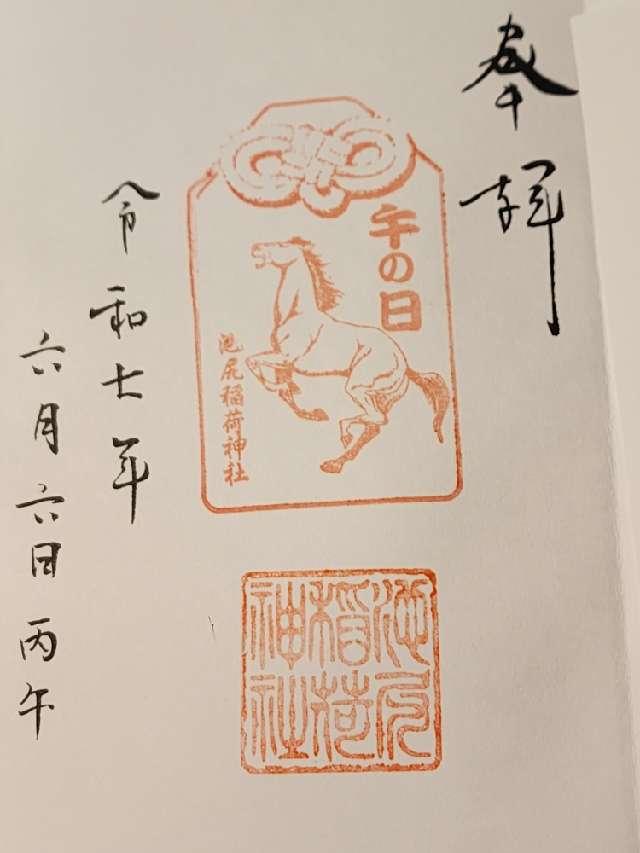 奉拝
午の日
池尻稲荷神社
池尻
稲荷
神社
令和七年
六月六日丙午